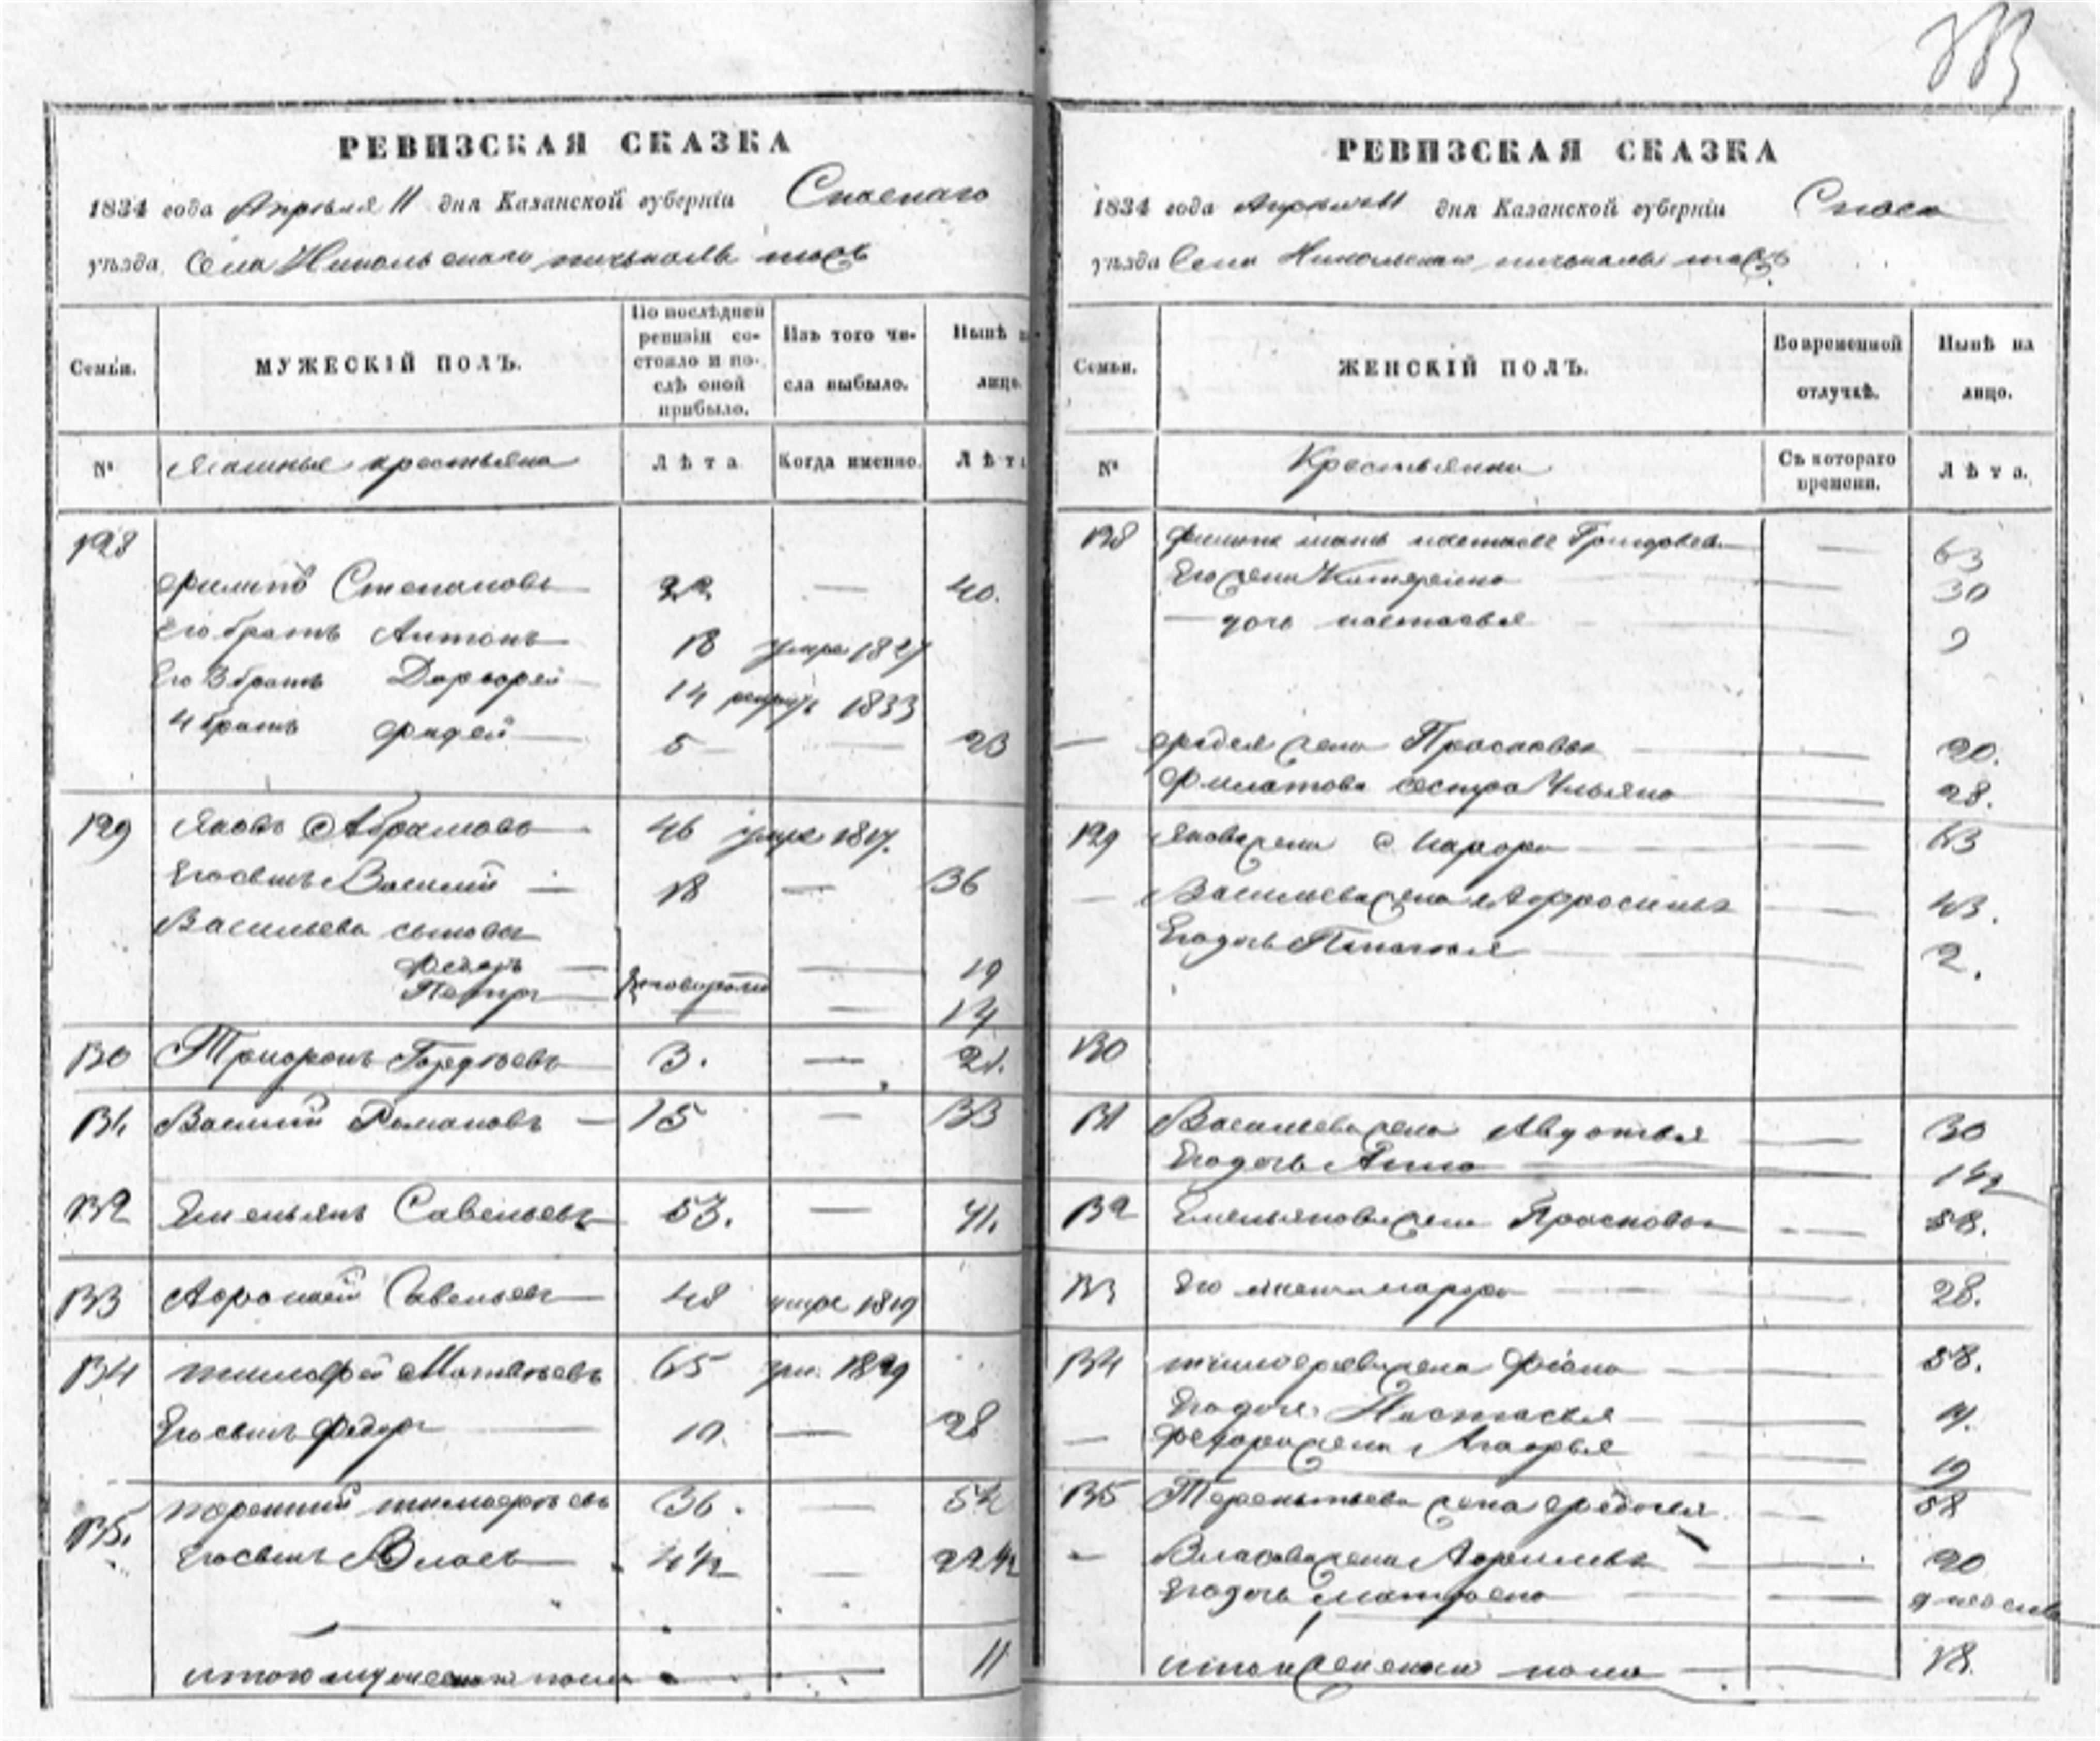 383
РЕВИЗСКАЯ СКАЗКА
1834 года Апреля 11 дня Казанской губерніи Спаскаго
уѣзда Села Никольскаго
Семьи.
МУЖЕСКІЙ ПОЛЪ.
По послѣдней ревизіи состояло и послѣ оной прибыло.
Изъ того числа выбыло.
Нынѣ на лицо.
№ крестьяна
Лѣта
Когда именно.
Лѣта
128
Филипъ Степановъ 22 — 40.
Его братъ Антонъ 18 умре 1827
Его 3 братъ Дорофей 14 рекрут 1833
4 братъ Фадей 5 — 23
129 Яковъ Абрамовъ 46 умре 1817.
Его сынъ Василий — 18 — 36
Васильева сыновья
Федоръ — 19
Петръ — 14
130 Трифонъ Гордѣевъ 3. — 21.
131 Василий Романовъ — 15 — 33
132 Емельянъ Савельевъ 53. — 71.
133 Афонасей Савельевъ 48 умре 1819
134 Тимофей Матвѣевъ 65 ум. 1829
Его сынъ Федоръ 10. — 28
135. Терентий Тимофѣевъ 36. — 54
Его сынъ Власъ 4½ — 22½
итого мужеска пола 11
РЕВИЗСКАЯ СКАЗКА
1834 года Апреля 11 дня Казанской губерніи Спаск
уѣзда Села Никольскаго
Семьи.
ЖЕНСКІЙ ПОЛЪ.
Во временной отлучкѣ.
Нынѣ на лицо.
№ Крестьянки
Съ котораго времени.
Лѣта.
128 Филипа мать 63
Его жена Катерина 30
— дочь настасья 9
— Фадея жена Просковья 20.
сестра Ульяна 28.
129 Якова жена Марфа 63
— Васильева жена Афросинья 43.
Его дочь Пелагея 2.
130
131 Васильева жена Авдотья 30
Его дочь Анна 1½
132 Емельянова жена Просковья 58.
133 Его марфа 28.
134 Тимофеева жена 58.
Его дочь Настасья
Федора жена Агафья 19
135 Терентьева жена Федосья 58
— Власова жена 20
Его дочь Матрена
итого женска пола 18.